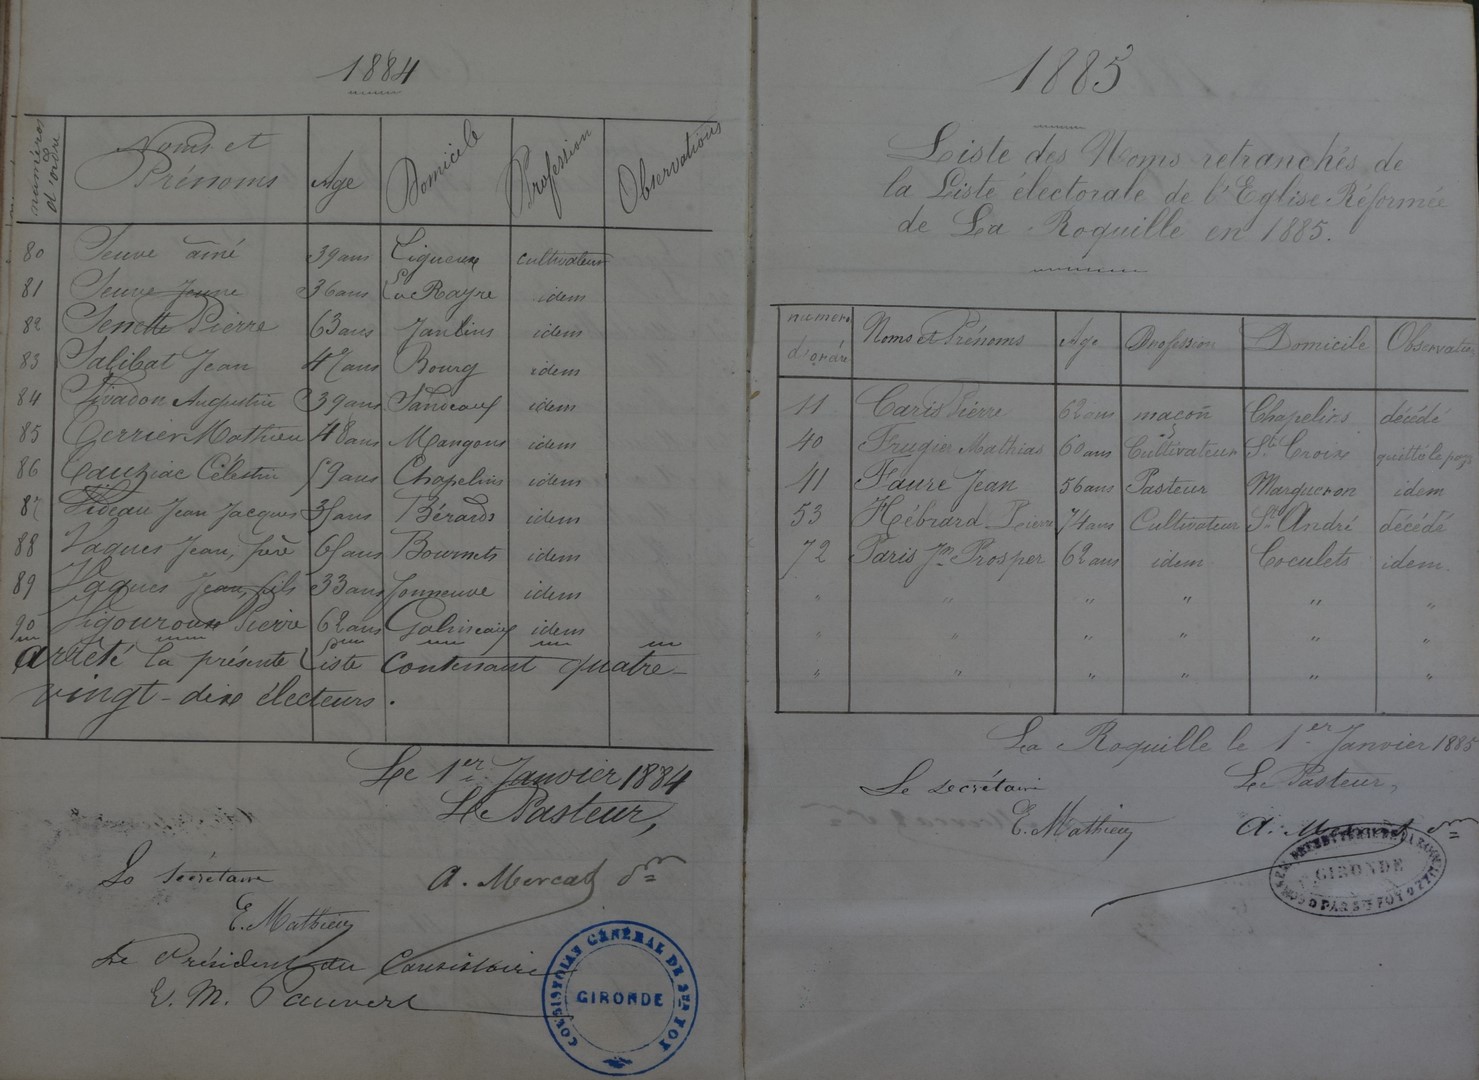 1884
numéros d'ordre Noms et Prénoms Age Domicile Profession Observations
80 Seuve aîné 39 ans Ligueux cultivateur
81 Seuve Jeune 36 ans La Rayre idem
82 Senette Pierre 63 ans idem
83 Salibat Jean 47 ans Bourg idem
84 Sivadon Augustin 39 ans idem
85 Mathieu 48 ans Mangons idem
86 Cauziac Célestin 59 ans Chapelins idem
87 Jean Jacques Bérards idem
88 Vaques Jean, père idem
89 Vaques Jean, fils 33 ans Jonneuve idem
90 Vigouroux Pierre 62 ans idem
arrêté la présente Liste contenant quatre-
vingt-dix électeurs.
Le 1er Janvier 1884
Le Pasteur,
Le Secrétaire A. Mercat
E. Mathieu
Le Président du Consistoire
E. M. Pauvert
CONSISTOIRE GÉNÉRAL DE STE FOY
GIRONDE
1885
Liste des Noms retranchés de
la Liste électorale de l'Eglise Réformée
de La Roquille en 1885.
numero d'ordre Noms et Prénoms Age Profession Domicile Observation
11 Caris Pierre 62 ans maçon Chapelins décédé
40 Frugier Mathias 60 ans Cultivateur Ste Croix quitté le pays
41 Faure Jean 56 ans Pasteur Margueron idem
53 Hébrard Pierre 74 ans Cultivateur St André décédé
72 Paris Jn Prosper 62 ans idem Coculets idem.
" " " " " "
" " " " " "
" " " " " "
La Roquille le 1er Janvier 1885
Le secrétaire Le Pasteur,
E. Mathieu A. Mercat
GIRONDE